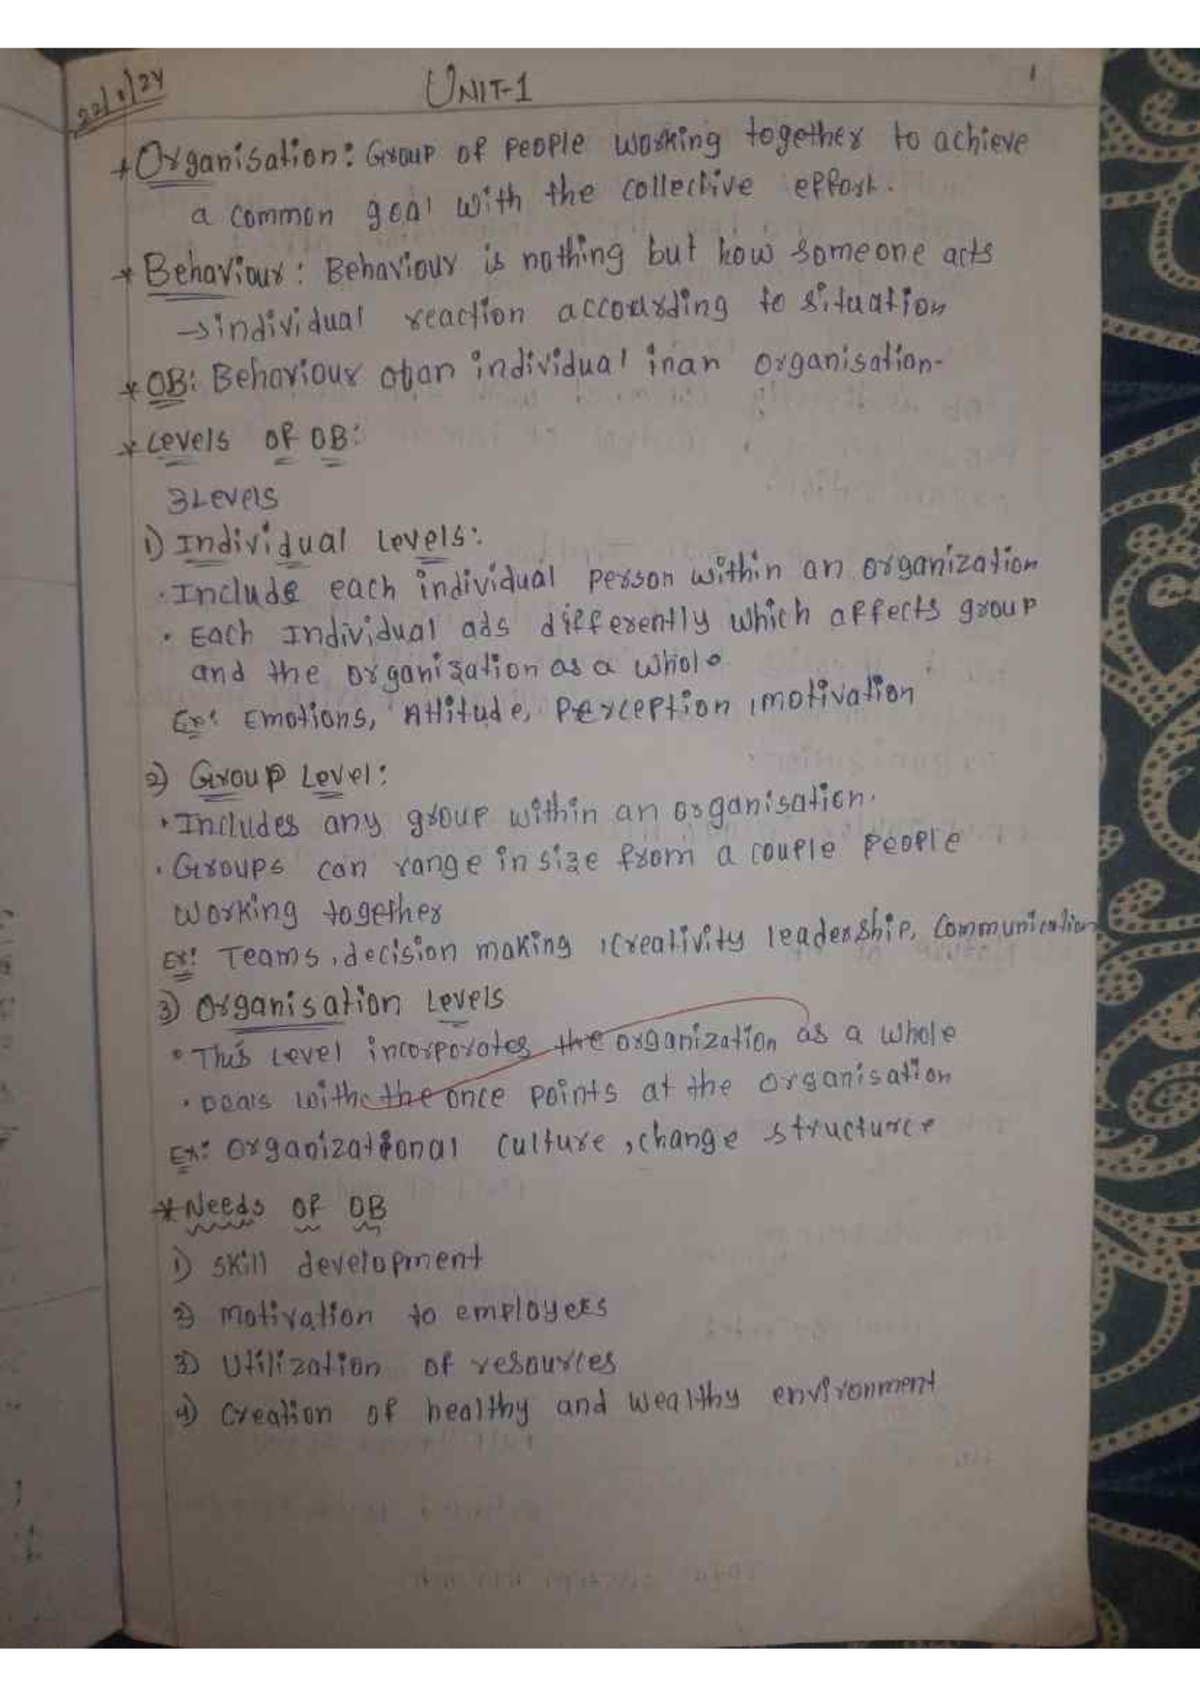 22/1/24
UNIT-1
1
* Organisation: Group of People working together to achieve
a common goal with the collective effort.
* Behaviour: Behaviour is nothing but how someone acts
→ individual reaction accourding to situation
* OB: Behaviour of an individual in an organisation-
* Levels of OB:
3 Levels
1) Individual Levels:
• Include each individual person within an organization
• Each Individual ads differently which affects group
and the organization as a whole
Ex: Emotions, Attitude, Perception, motivation
2) Group Level:
• Includes any group within an organisation.
• Groups can range in size from a couple people
working together
Ex: Teams, decision making, creativity leadership, Communication
3) Organisation Levels
• This Level incorporates the organization as a whole
• Deals with the once points at the organisation
Ex: Organizational culture, change structurce
* Needs of OB
1) Skill development
2) motivation to employees
3) Utilization of resources
4) Creation of healthy and wealthy environment